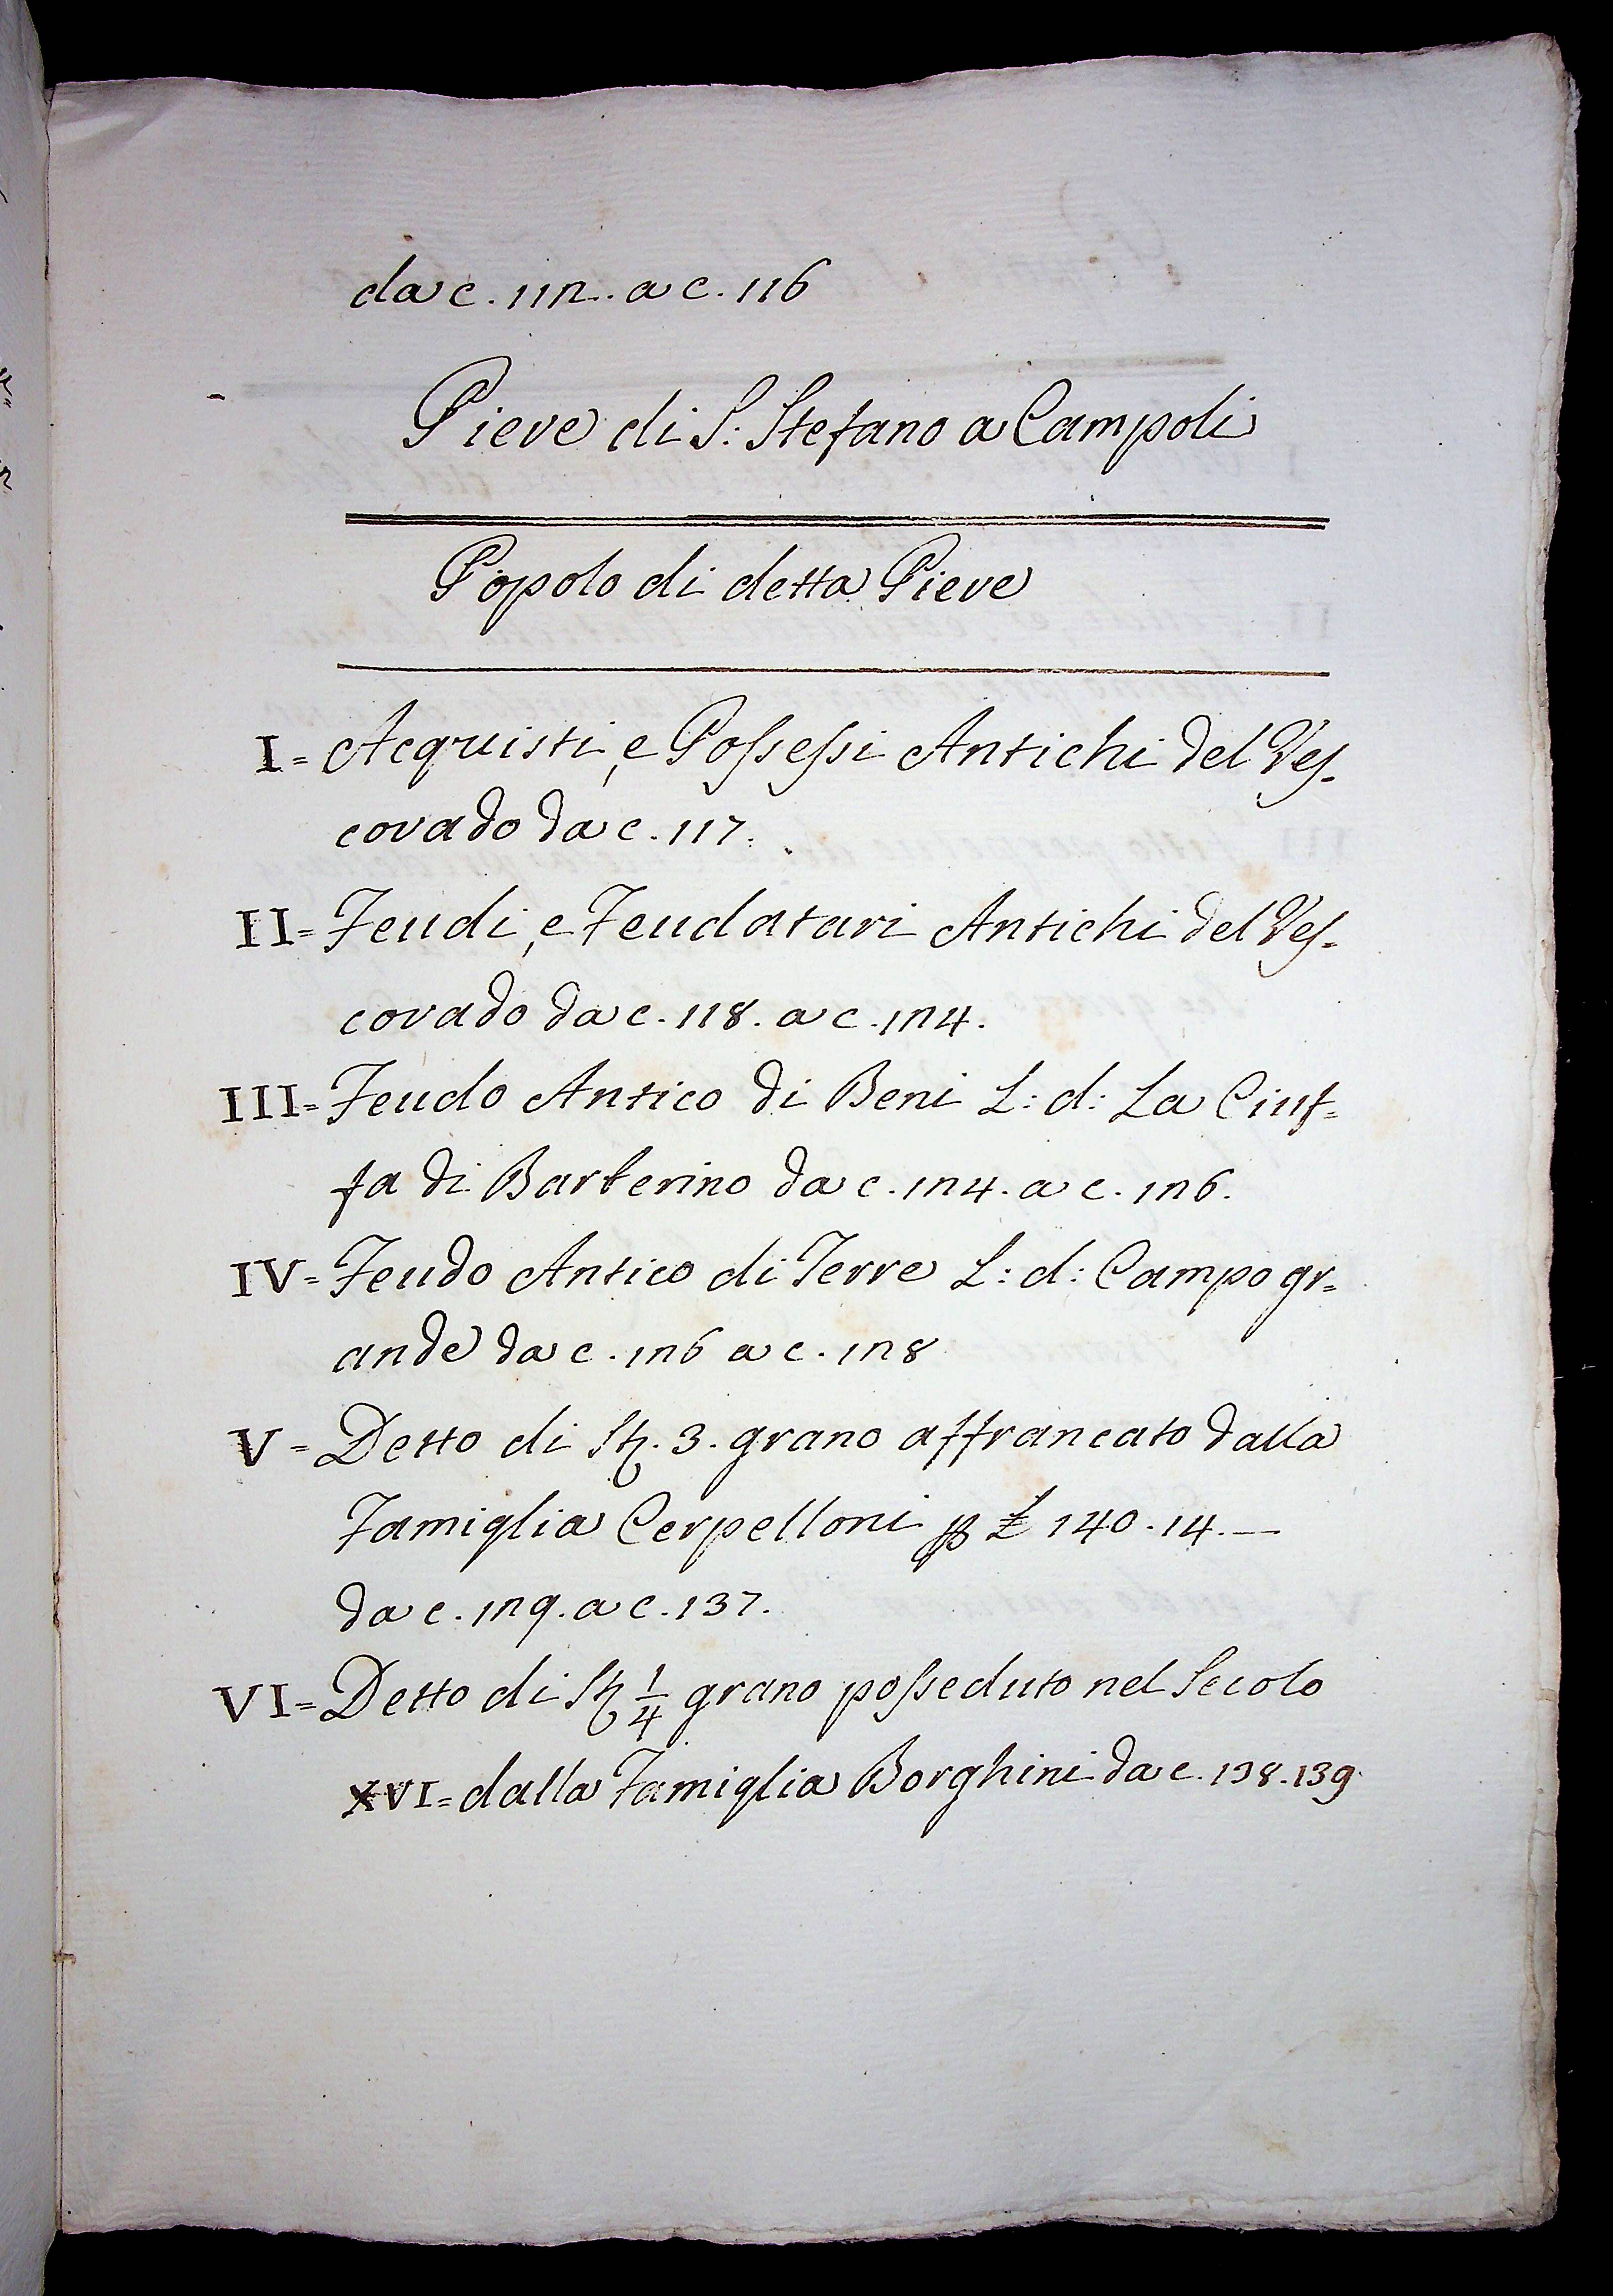 da c. 112. a c. 116
Pieve di S: Stefano a Campoli
Popolo di detta Pieve
I= Acquisti, e Possessi Antichi del Ves-
covado da c. 117.
II= Feudi, e Feudatari Antichi del Ves-
covado da c. 118. a c. 124.
III= Feudo Antico di Beni L: d: La Ciuf=
fa di Barberino da c. 124. a c. 126.
IV= Feudo Antico di Terre L: d: Campo gr=
ande da c. 126 a c. 128
V= Detto di St. 3. grano affrancato dalla
Famiglia Cerpelloni p £ 140. 14. —
da c. 129. a c. 137.
VI= Detto di St 1/4 grano posseduto nel Secolo
XVI= dalla Famiglia Borghini da c. 138. 139